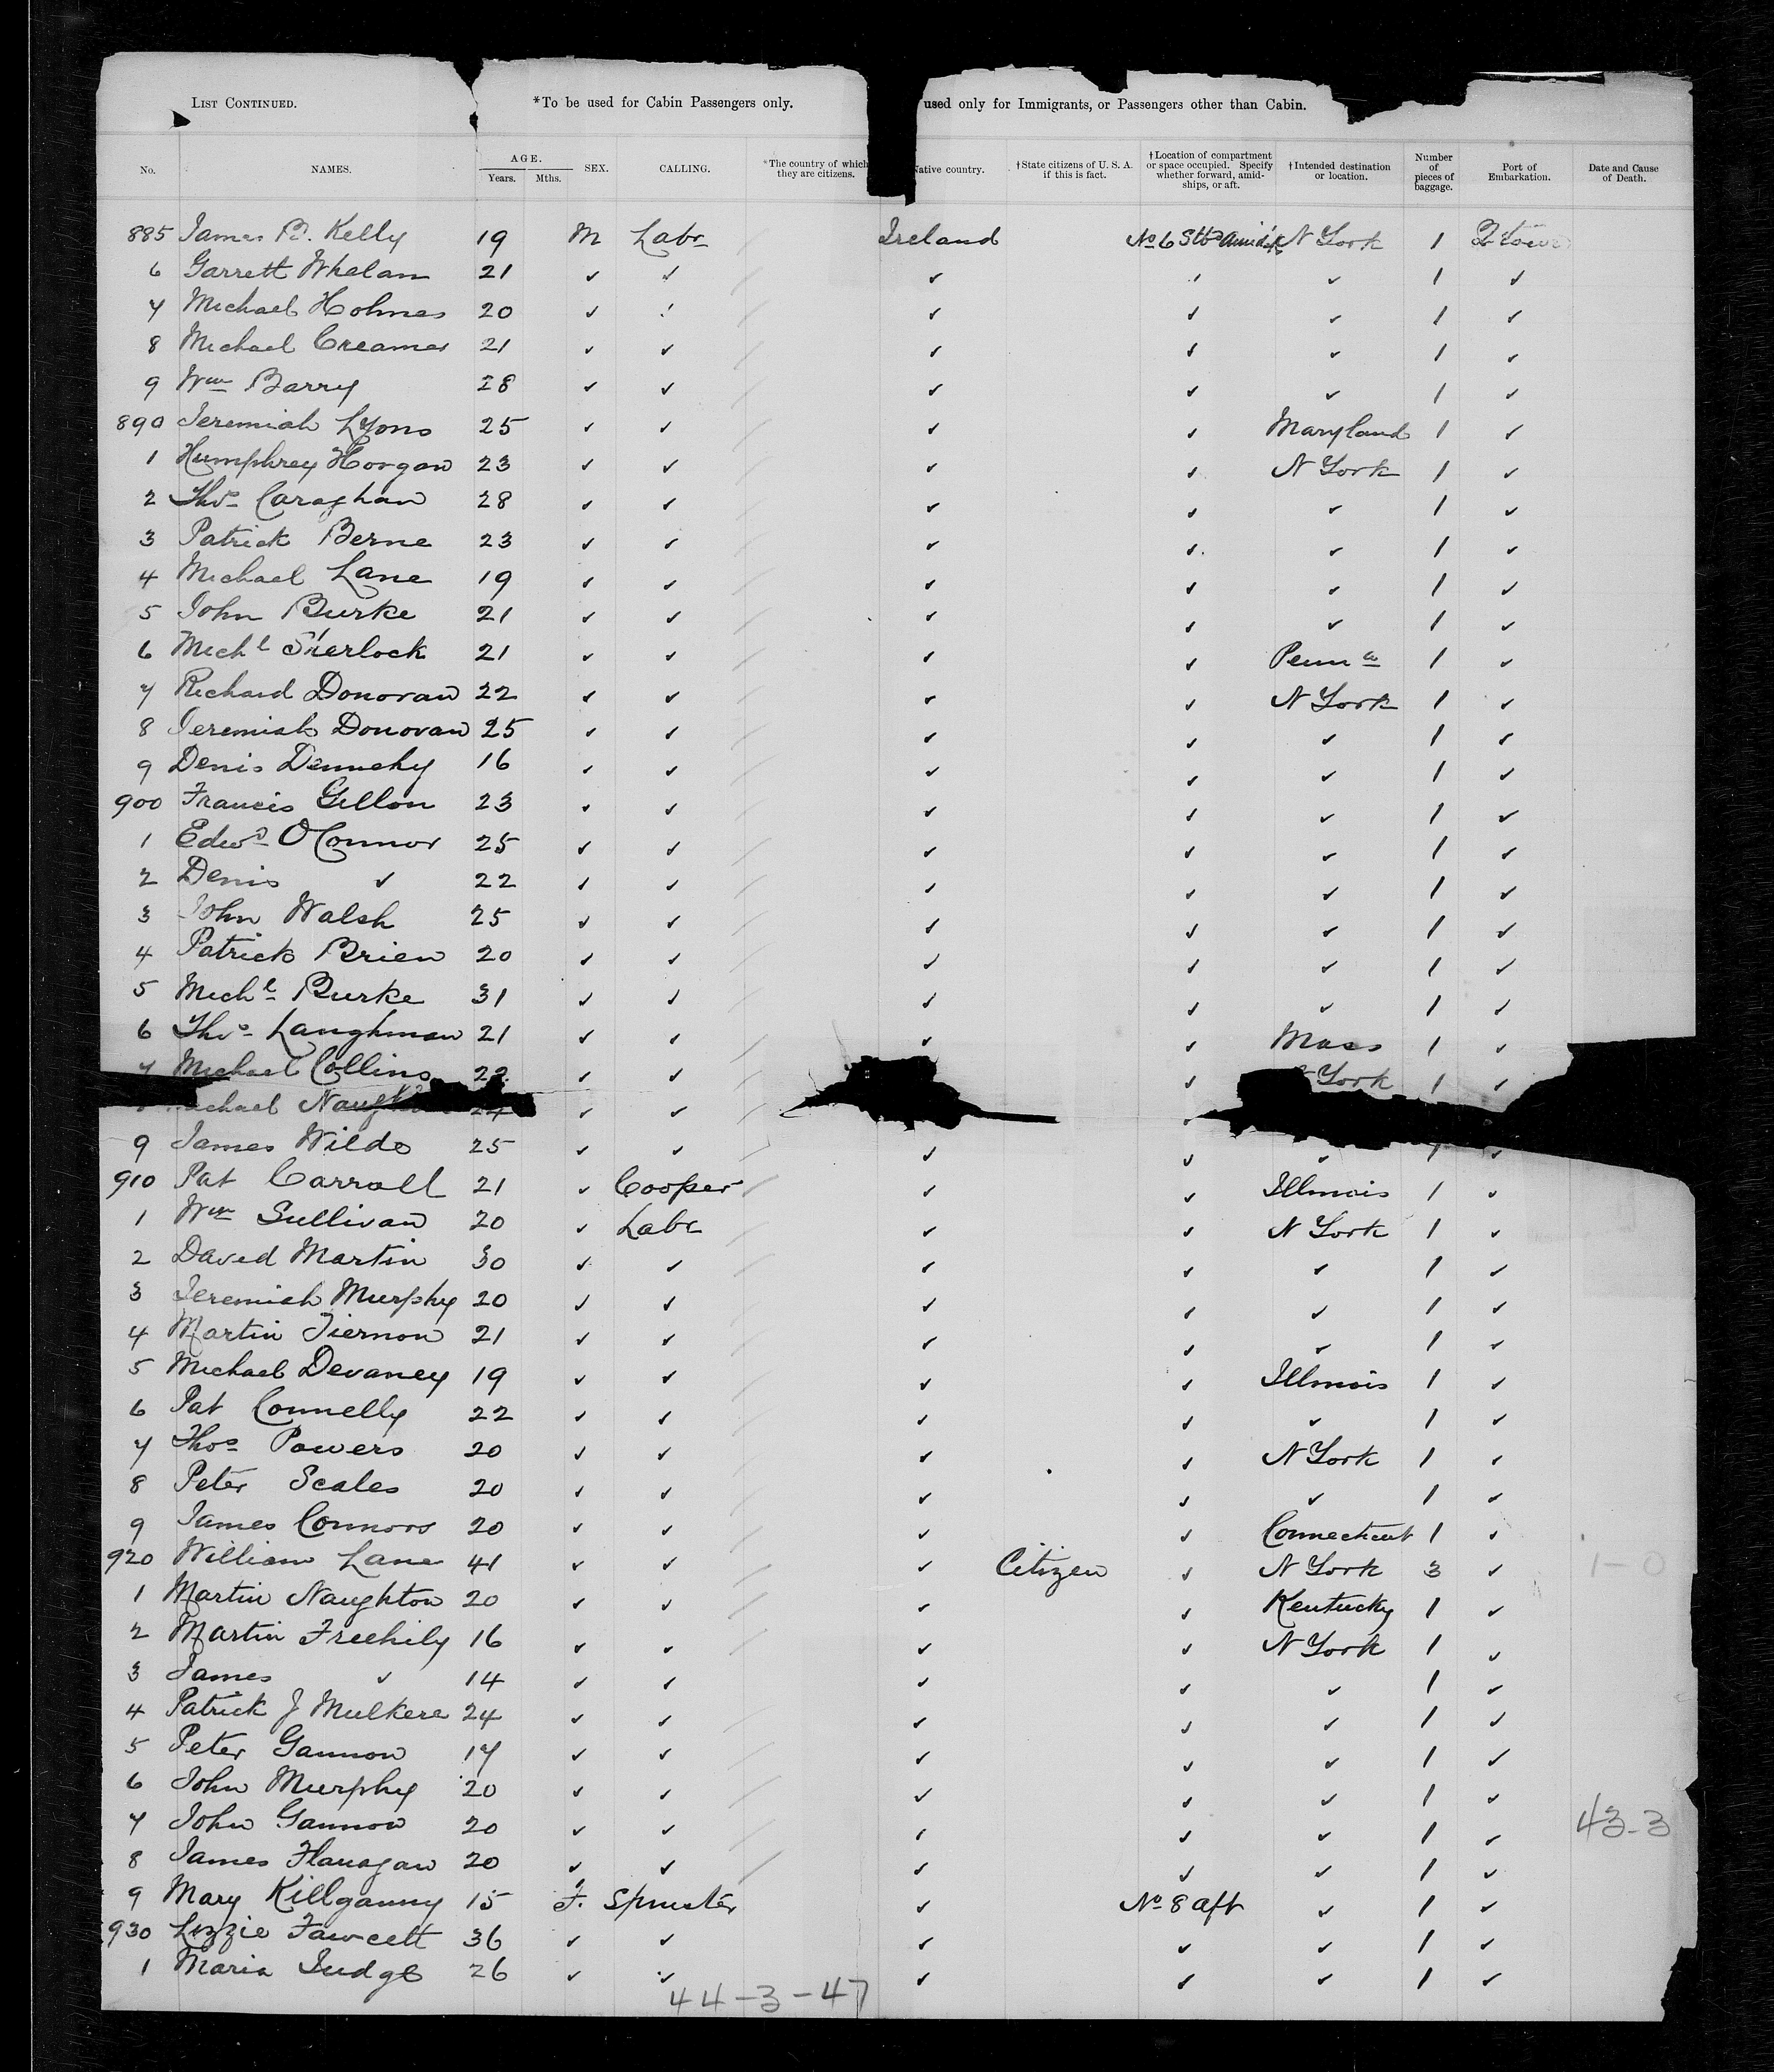 LIST CONTINUED. *To be used for Cabin Passengers only. used only for Immigrants, or Passengers other than Cabin.
No. NAMES. AGE. Years. Mths. SEX. CALLING. *The country of which they are citizens. Native country. †State citizens of U. S. A. if this is fact. †Location of compartment or space occupied. Specify whether forward, amidships, or aft. †Intended destination or location. Number of pieces of baggage. Port of Embarkation. Date and Cause of Death.
885 James B. Kelly 19 M Labr Ireland No 6 Stb Amids N York 1 Qtown
6 Garrett Whelan 21 ✓ ✓ ✓ ✓ ✓ 1 ✓
7 Michael Holmes 20 ✓ ✓ ✓ ✓ ✓ 1 ✓
8 Michael Creamer 21 ✓ ✓ ✓ ✓ ✓ 1 ✓
9 Wm Barry 28 ✓ ✓ ✓ ✓ ✓ 1 ✓
890 Jeremiah Lyons 25 ✓ ✓ ✓ ✓ Maryland 1 ✓
1 Humphrey Horgan 23 ✓ ✓ ✓ ✓ N York 1 ✓
2 Thos Caraghan 28 ✓ ✓ ✓ ✓ ✓ 1 ✓
3 Patrick Berne 23 ✓ ✓ ✓ ✓ ✓ 1 ✓
4 Michael Lane 19 ✓ ✓ ✓ ✓ ✓ 1 ✓
5 John Burke 21 ✓ ✓ ✓ ✓ ✓ 1 ✓
6 Michl Sherlock 21 ✓ ✓ ✓ ✓ Penna 1 ✓
7 Richard Donovan 22 ✓ ✓ ✓ ✓ N York 1 ✓
8 Jeremiah Donovan 25 ✓ ✓ ✓ ✓ ✓ 1 ✓
9 Denis Dennehy 16 ✓ ✓ ✓ ✓ ✓ 1 ✓
900 Francis Gillon 23 ✓ ✓ ✓ ✓ ✓ 1 ✓
1 Edwd O'Connor 25 ✓ ✓ ✓ ✓ ✓ 1 ✓
2 Denis ✓ 22 ✓ ✓ ✓ ✓ ✓ 1 ✓
3 John Walsh 25 ✓ ✓ ✓ ✓ ✓ 1 ✓
4 Patrick Brien 20 ✓ ✓ ✓ ✓ ✓ 1 ✓
5 Michl Burke 31 ✓ ✓ ✓ ✓ ✓ 1 ✓
6 Thos Laughman 21 ✓ ✓ ✓ ✓ Mass 1 ✓
7 Michael Collins 22 ✓ ✓ ✓ York 1 ✓
Michael 24 ✓ ✓ ✓
9 James Wilde 25 ✓ ✓ ✓ ✓ ✓ 1 ✓
910 Pat Carroll 21 ✓ Cooper ✓ ✓ Illinois 1 ✓
1 Wm Sullivan 20 ✓ Labr ✓ ✓ N York 1 ✓
2 David Martin 30 ✓ ✓ ✓ ✓ ✓ 1 ✓
3 Jeremiah Murphy 20 ✓ ✓ ✓ ✓ ✓ 1 ✓
4 Martin Tiernon 21 ✓ ✓ ✓ ✓ ✓ 1 ✓
5 Michael Devaney 19 ✓ ✓ ✓ ✓ Illinois 1 ✓
6 Pat Connelly 22 ✓ ✓ ✓ ✓ ✓ 1 ✓
7 Thos Powers 20 ✓ ✓ ✓ ✓ N York 1 ✓
8 Peter Scales 20 ✓ ✓ ✓ ✓ ✓ 1 ✓
9 James Connors 20 ✓ ✓ ✓ ✓ Connecticut 1 ✓
920 William Lane 41 ✓ ✓ ✓ Citizen ✓ N York 3 ✓ 1-0
1 Martin Naughton 20 ✓ ✓ ✓ ✓ Kentucky 1 ✓
2 Martin Freehily 16 ✓ ✓ ✓ ✓ N York 1 ✓
3 James ✓ 14 ✓ ✓ ✓ ✓ ✓ 1 ✓
4 Patrick J Mulkere 24 ✓ ✓ ✓ ✓ ✓ 1 ✓
5 Peter Gannon 17 ✓ ✓ ✓ ✓ ✓ 1 ✓
6 John Murphy 20 ✓ ✓ ✓ ✓ ✓ 1 ✓
7 John Gannon 20 ✓ ✓ ✓ ✓ ✓ 1 ✓ 43-3
8 James Flanagan 20 ✓ ✓ ✓ ✓ ✓ 1 ✓
9 Mary Killganny 15 F. Spinster ✓ No 8 aft ✓ 1 ✓
930 Lizzie Fawcett 36 ✓ ✓ ✓ ✓ ✓ 1 ✓
1 Maria Judge 26 ✓ ✓ ✓ ✓ ✓ 1 ✓
44-3-47